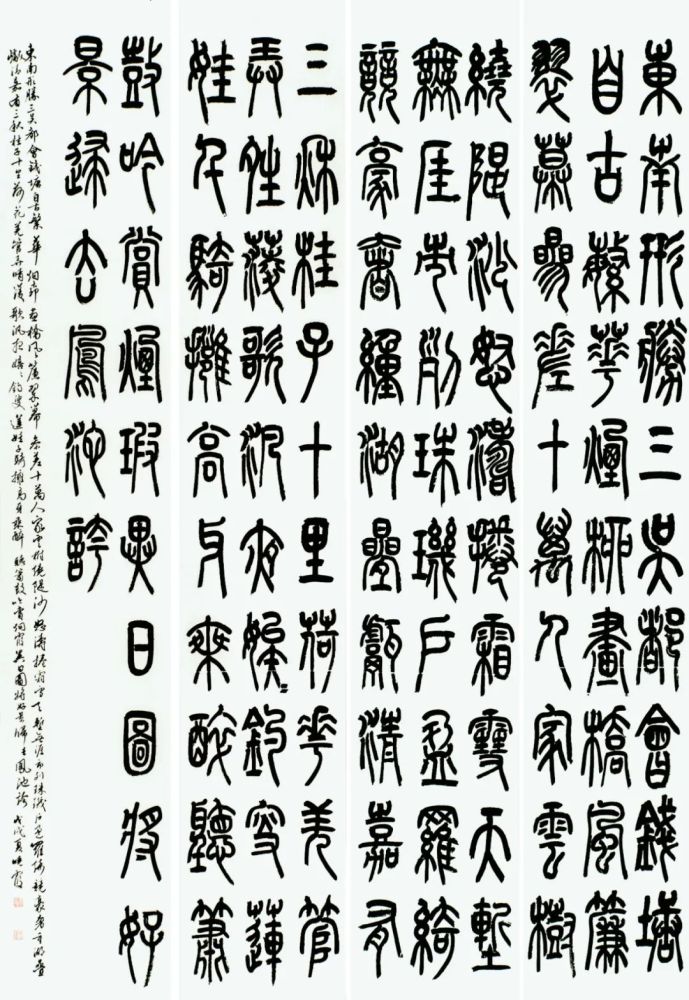 東南形勝三吳都會錢塘
自古繁華煙柳畫橋風簾
翠幕參差十萬人家雲樹
繞隄沙怒濤捲霜雪天塹
無涯市列珠璣戶盈羅綺
競豪奢緟湖疊巘清嘉有
三秋桂子十里荷花羌管
弄晴菱歌泛夜嬉〻釣叟蓮
娃千騎擁高牙乘醉聽簫
鼓吟賞煙霞異日圖將好
景歸去鳳池誇
東南形勝三吳都會錢塘自古繁華烟柳畫橋風簾翠幕參差十萬人家雲樹繞隄沙怒濤捲霜雪天塹無涯市列珠璣戶盈羅綺競豪奢重湖疊
巘清嘉有三秋桂子十里荷花羌管弄晴菱歌泛夜嬉〻釣叟蓮娃千騎擁高牙乘醉聽簫鼓吟賞烟霞異日圖將好景歸去鳳池誇 戊戌夏